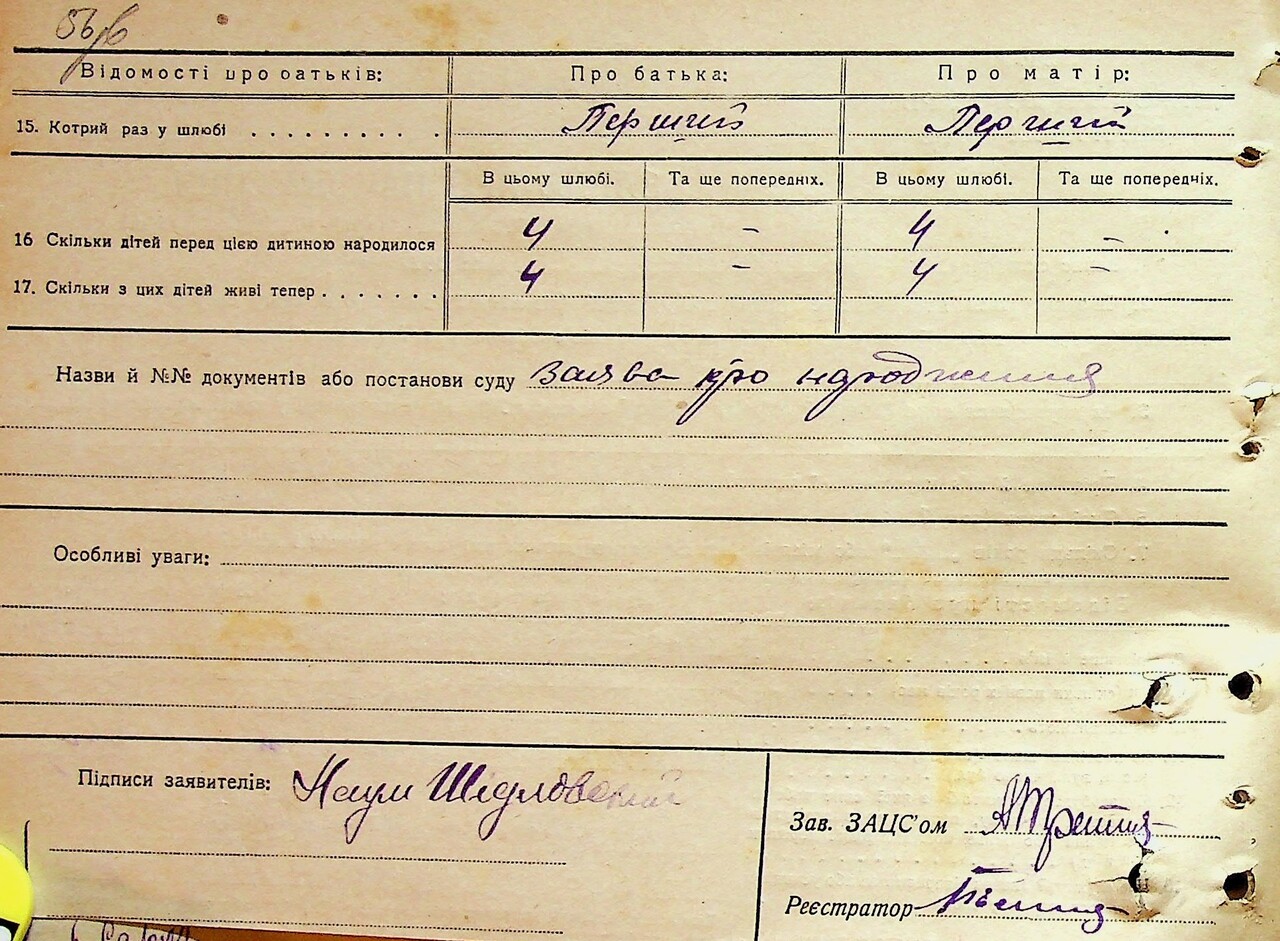 Відомості про батьків: Про батька: Про матір:
15. Котрий раз у шлюбі . . . . . . . . . . Перший Перший
В цьому шлюбі. Та ще попередніх. В цьому шлюбі. Та ще попередніх.
16 Скільки дітей перед цією дитиною народилося 4 - 4 -
17. Скільки з цих дітей живі тепер . . . . . . . 4 - 4 -
Назви й №№ документів або постанови суду заява про народження
Особливі уваги:
Підписи заявителів: Наум Шидловский
Зав. ЗАЦС'ом
Реєстратор